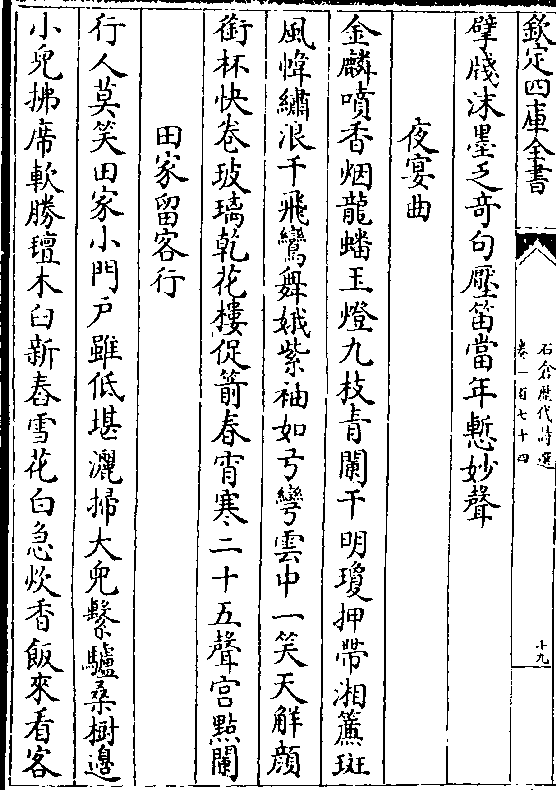 欽定四庫全書
石倉歷代詩選
卷一百七十四
十九
擘牋沫墨乏竒句壓笛當年慙妙聲
夜宴曲
金麟噴香烟龍蟠玉燈九枝青闌干明瓊押帶湘簾斑
風幃繡浪千飛鸞舞娥紫袖如弓彎雲中一笑天解顔
銜杯快卷玻璃乾花樓促箭春宵寒二十五聲宫㸃闌
田家留客行
行人莫笑田家小門户雖低堪灑掃大兒繫驢桑樹邉
小兒拂席軟勝氊木臼新舂雪花白急炊香飯來看客